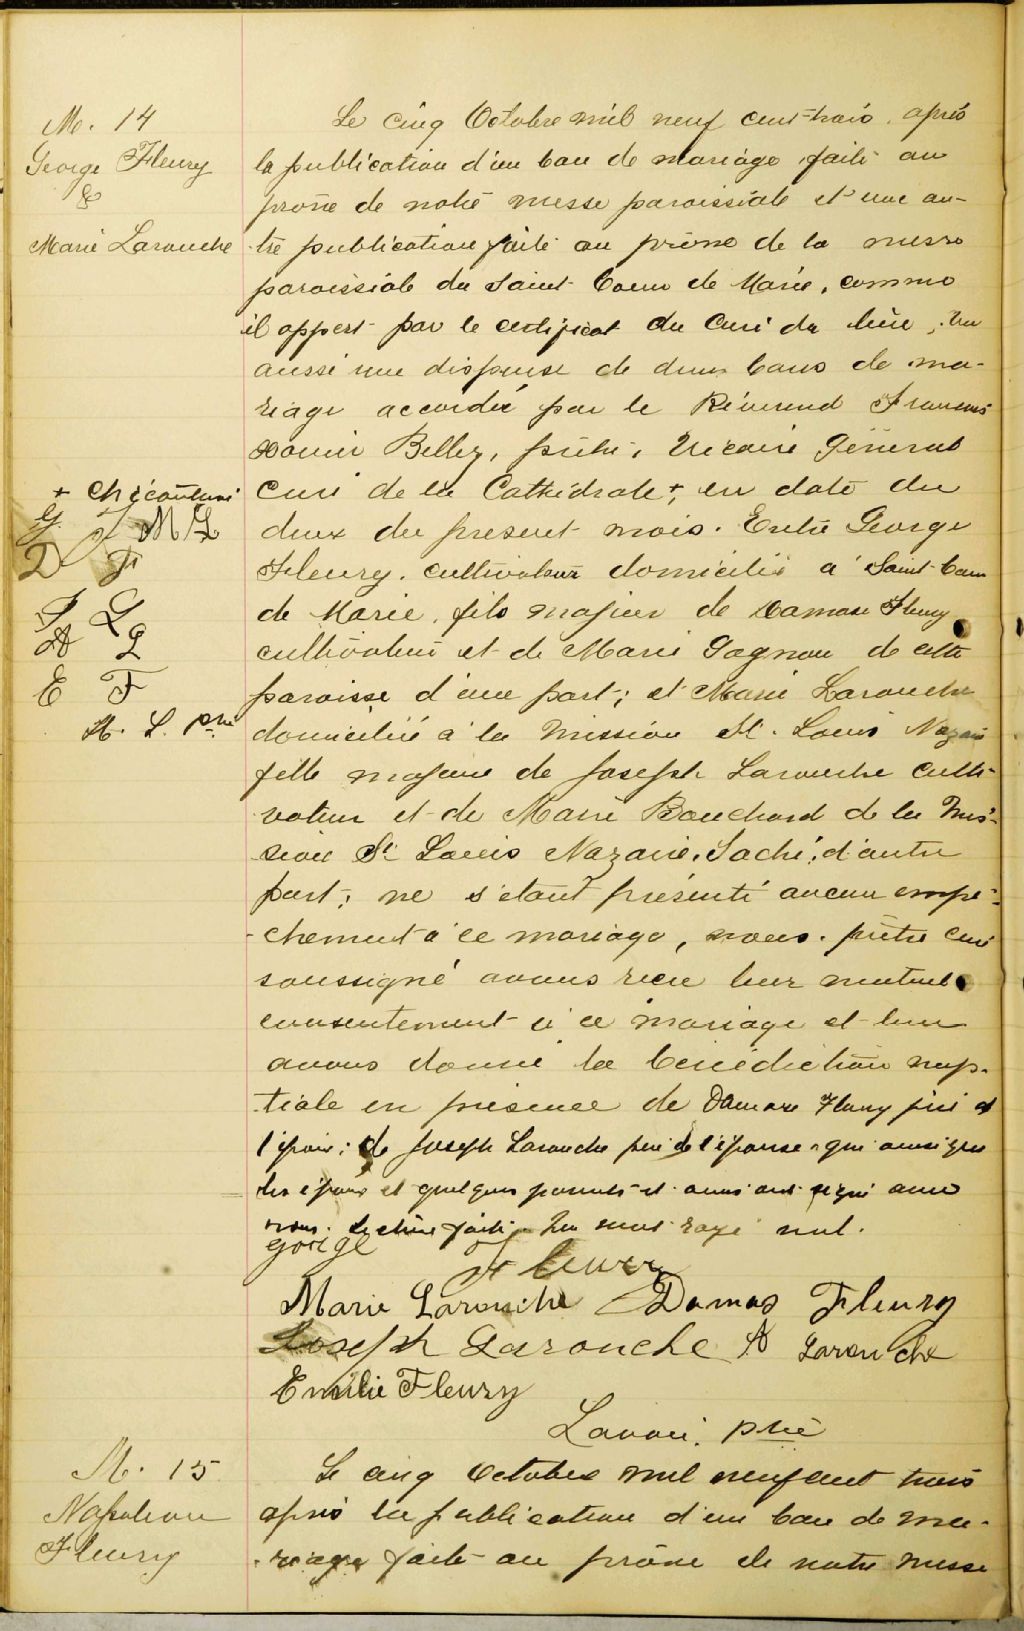 M. 14
George Fleury
&
Marie Larouche
Le cinq Octobre mil neuf cent trois, après
la publication d'un ban de mariage faite au
prône de notre messe paroissiale et une au-
tre publication faite au prône de la messe
paroissiale du Saint Coeur de Marie, comme
il appert par le certificat du Curé du lieu, Vu
aussi une dispense de deux bans de ma-
riage accordée par le Révérend François
Xavier Belley, prêtre, Vicaire Général
Curé de la Cathédrale +, en date du
deux du présent mois. Entre George
Fleury, cultivateur domicilié à Saint Coeur
de Marie, fils majeur de Damase Fleury
cultivateur et de Marie Gagnon de cette
paroisse d'une part; et Marie Larouche
domiciliée à la Mission St. Louis Nazaire
fille majeure de Joseph Larouche culti-
vateur et de Marie Bouchard de la Mis-
sion St Louis Nazaire, Saché, d'autre
part; ne s'étant présenté aucun empê-
chement à ce mariage, nous, prêtre curé
soussigné avons reçu leur mutuel
consentement à ce mariage et leur
avons donné la bénédiction nup-
tiale en présence de Damase Fleury père de
l'époux; de Joseph Larouche père de l'épouse qui ainsi que
les époux et quelques parents et amis ont signé avec
nous. Lecture faite. Un mot rayé nul.
+ Chicoutimi
G F M L
D F
J L
A L
E F
A. L. ptre
George Fleury
Marie Larouche Damas Fleury
Joseph Larouche A Larouche
Emilie Fleury
Lavoie, ptre
M. 15
Napoléon
Fleury
Le cinq Octobre mil neuf cent trois
après la publication d'un ban de ma-
riage faite au prône de notre messe